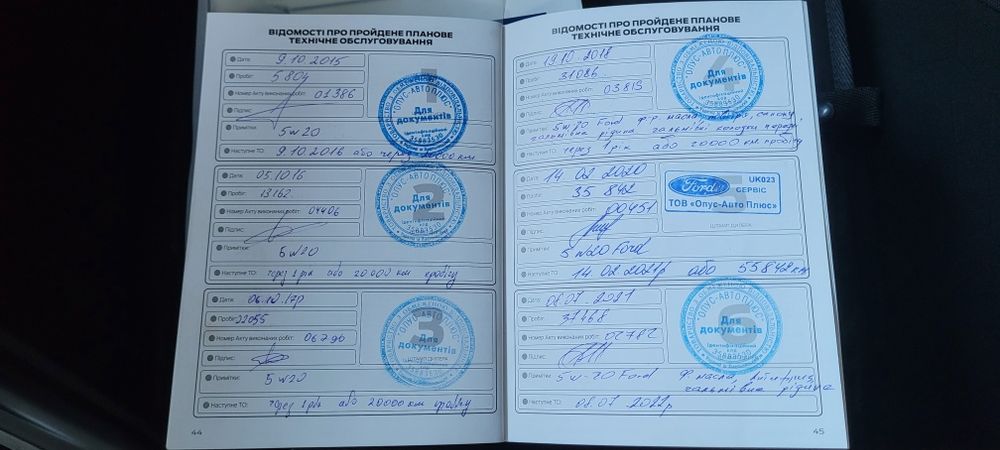 ВІДОМОСТІ ПРО ПРОЙДЕНЕ ПЛАНОВЕ
ТЕХНІЧНЕ ОБСЛУГОВУВАННЯ
Дата: 9.10.2015
Пробіг: 5804
Номер Акту виконаних робіт: 01386
Підпис:
Примітки: 5w20
Наступне ТО: 9.10.2016 або через 20000 км
1
"ОПУС-АВТО ПЛЮС"
Для
документів
Ідентифікаційний
код
35863530
Дата: 05.10.16
Пробіг: 13162
Номер Акту виконаних робіт: 04406
Підпис:
Примітки: 5w20
Наступне ТО: через 1 рік або 20000 км пробігу
2
"ОПУС-АВТО ПЛЮС"
Для
документів
Ідентифікаційний
код
35863530
Дата: 06.10.17р
Пробіг: 22055
Номер Акту виконаних робіт: 06790
Підпис:
Примітки: 5w20
Наступне ТО: через 1 рік або 20000 км пробігу
3
"ОПУС-АВТО ПЛЮС"
Для
документів
Ідентифікаційний
код
35863530
ШТАМП ДИЛЕРА
44
ВІДОМОСТІ ПРО ПРОЙДЕНЕ ПЛАНОВЕ
ТЕХНІЧНЕ ОБСЛУГОВУВАННЯ
Дата: 19.10.2018
Пробіг: 31086
Номер Акту виконаних робіт: 03815
Підпис:
Примітки: 5w20 Ford ф-р масла, повітря, салону,
гальмівна рідина гальмівні колодки передні
Наступне ТО: через 1 рік або 20000 км. пробігу
4
"ОПУС-АВТО ПЛЮС"
Для
документів
Ідентифікаційний
код
35863530
Дата: 14.02.2020
Пробіг: 35842
Номер Акту виконаних робіт: 00451
Підпис:
Примітки: 5w20 Ford
Наступне ТО: 14.02.2021р або 55842 км
5
Ford
UK023
СЕРВІС
ТОВ «Опус-Авто Плюс»
ШТАМП ДИЛЕРА
Дата: 08.07.2021
Пробіг: 37468
Номер Акту виконаних робіт: 02782
Підпис:
Примітки: 5w-20 Ford ф-р масла,
гальмівна рідина
Наступне ТО: 08.07.2022р
6
"ОПУС-АВТО ПЛЮС"
Для
документів
Ідентифікаційний
код
35863530
45